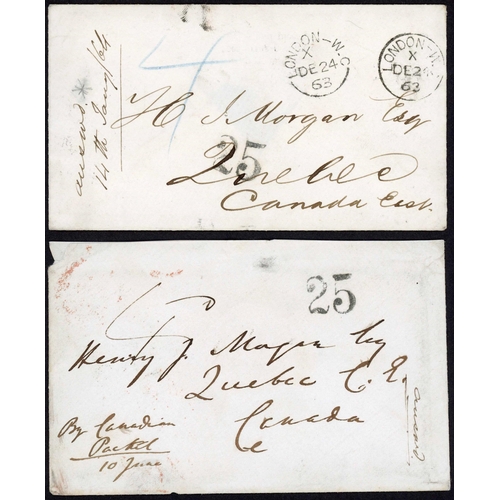 answd.
14th Jany/64
4
LONDON-W.C
X
DE 24
63
LONDON-W.C
X
DE 24
63
H J Morgan Esq
25
Quebec
Canada East
25
Henry J. Morgan Esq
Quebec C. E.
Canada
By Canadian
Packet
10 June
answd.